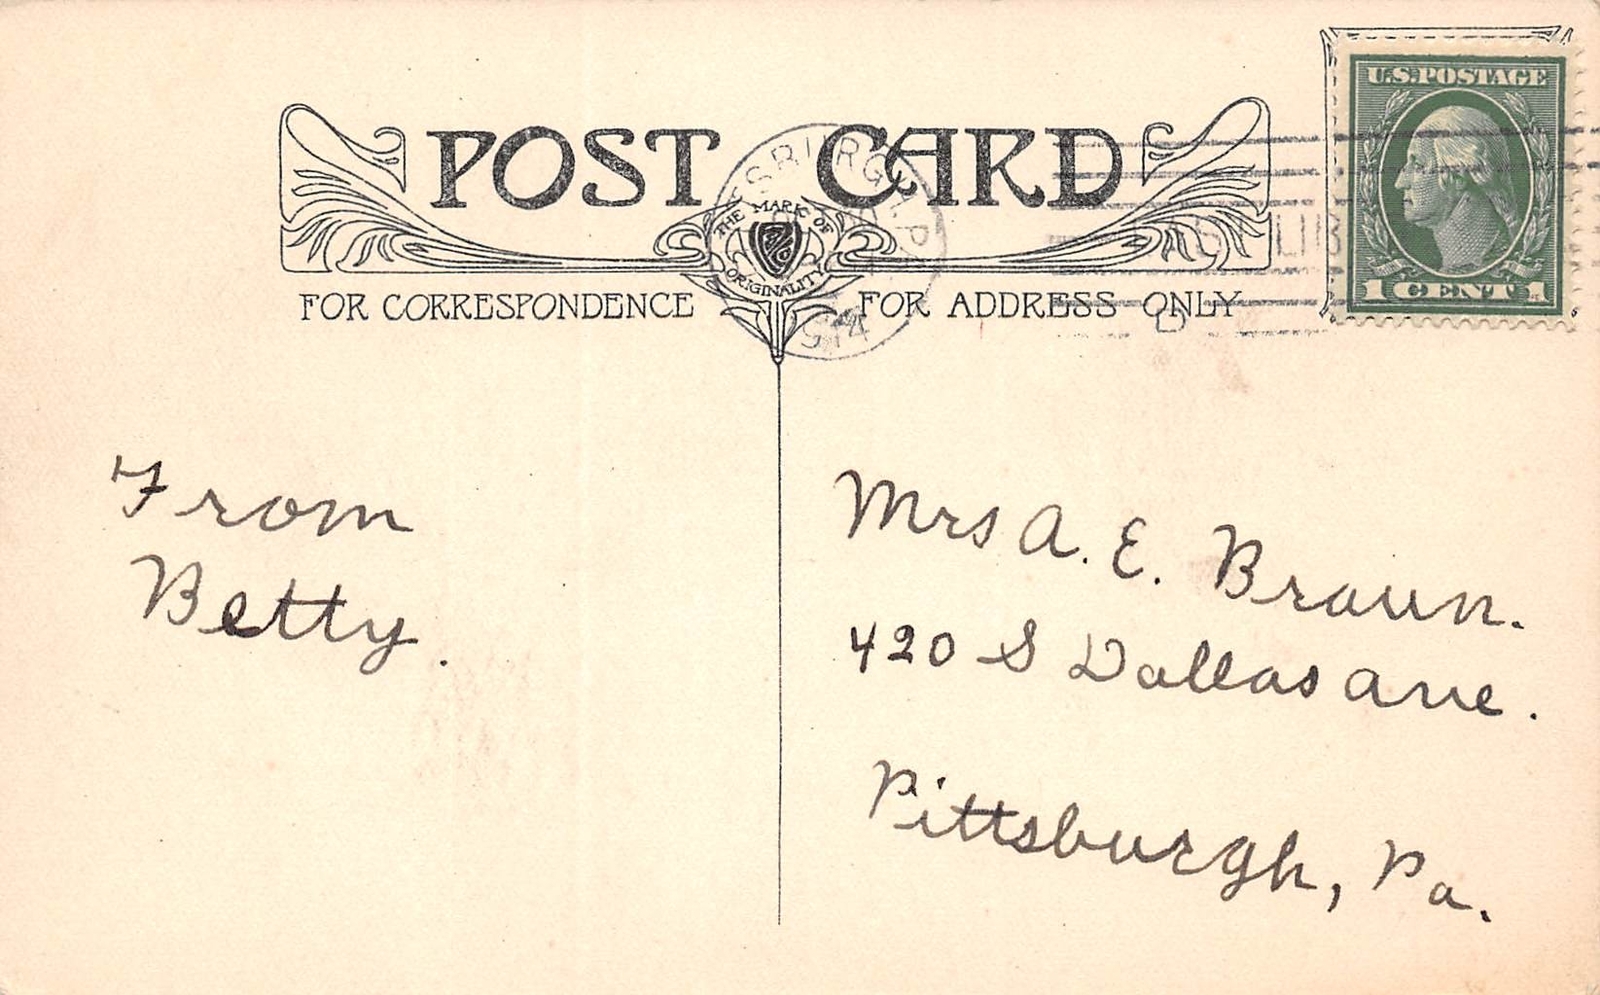 POST CARD
THE MARK OF
ORIGINALITY
FOR CORRESPONDENCE
FOR ADDRESS ONLY
U.S.POSTAGE
1 CENT 1
From
Betty.
Mrs A. E. Braun.
420 S Dallas ave.
Pittsburgh, Pa.